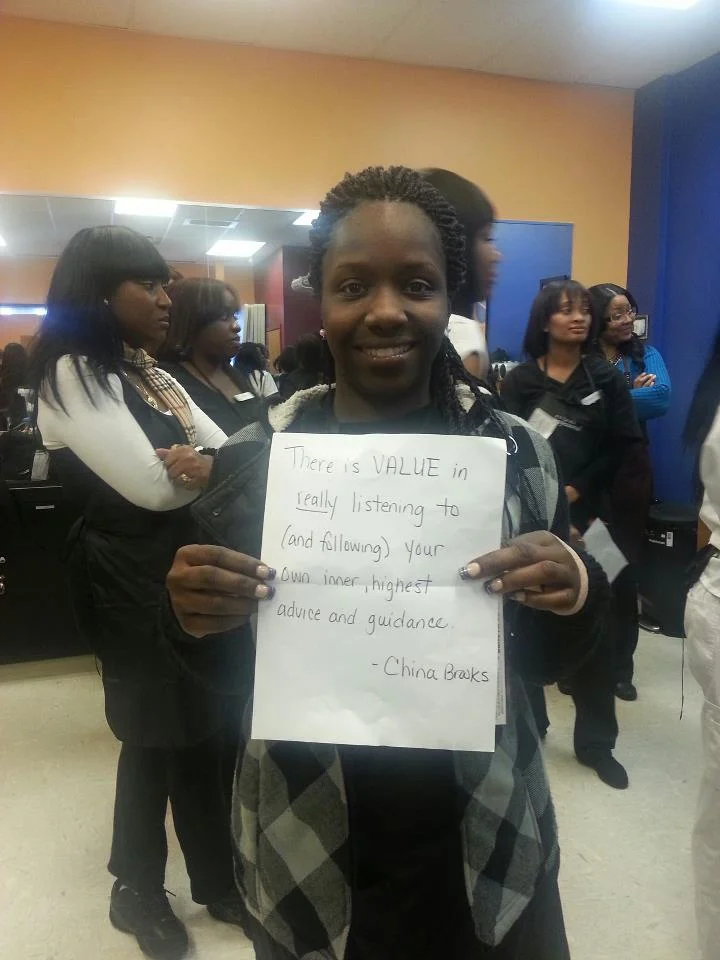 There is VALUE in
really listening to
(and following) your
own inner, highest
advice and guidance.
- China Brooks